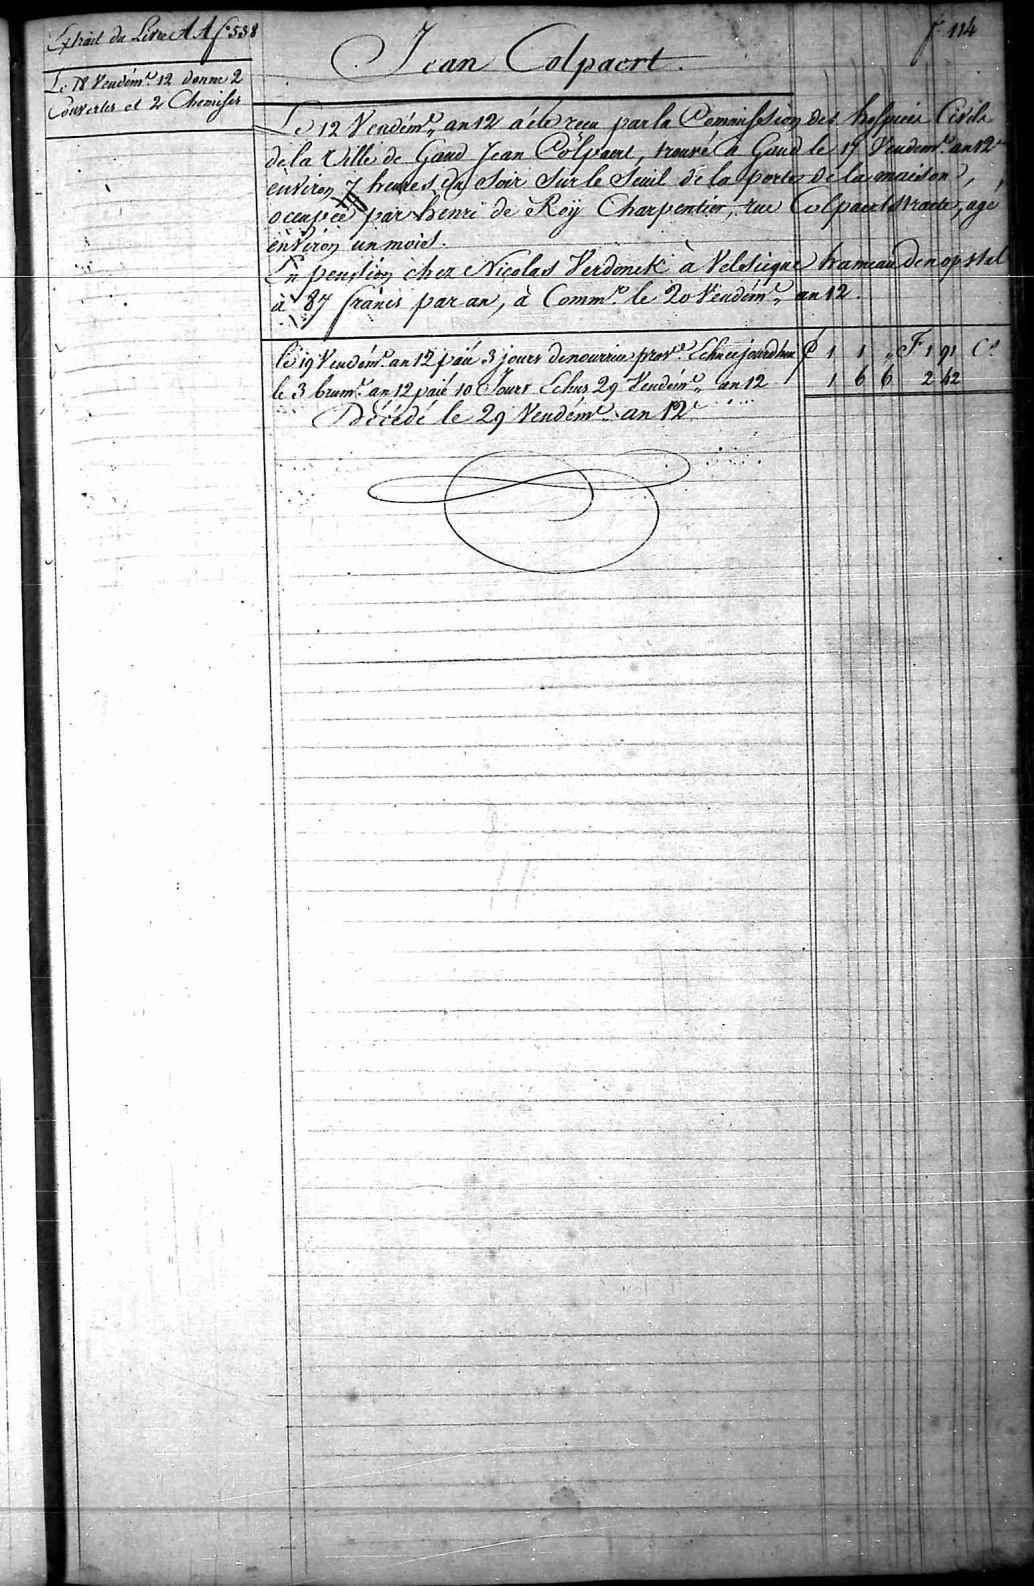 Extrait du Livre A A f° 538
f° 114
Jean Colpaert.
Le 18 Vendém.re 12 donné 2
Couvertes et 2 Chemises
Le 12 Vendém.re an 12 a été recu par la Commission des hospices Civils
de la Ville de Gand Jean Colpaert, trouvé à Gand le 17 Vendem.re an 12
environ 7 heures du Soir Sur le Seuil de la porte de la maison,
occupée par henri de Roÿ Charpentier, rue Colpaertstraete, agé
environ un mois.
En pension chez Nicolas Verdonck à Velsicque hameau denopstal
à 87 francs par an, à Comm.er le 20 Vendém.re an 12.
le 19 Vendém.re an 12 paié 3 jours denourrice prov.re Echu cejourdhui £ 1 1 „ F 1 91 C.s
le 3 brum.re an 12 paié 10 Jours Echus 29 Vendém.re an 12 1 6 6 2 42
Décédé le 29 Vendém.re an 12